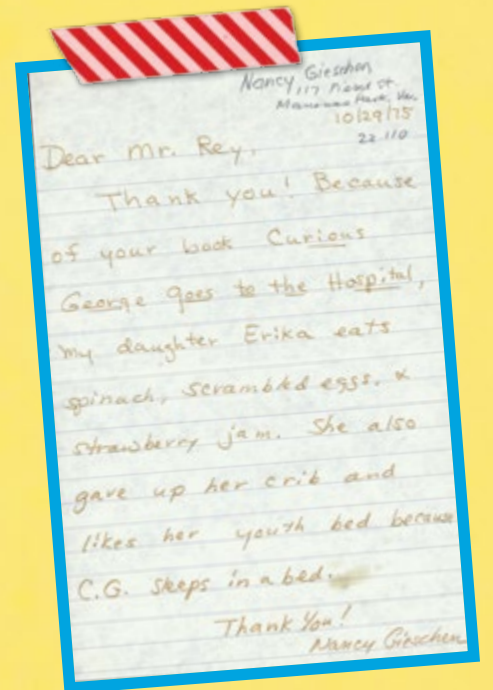 Nancy Gieschen
117 St.
Manassas Park, Va.
10/29/75
22110
Dear Mr. Rey,
Thank you! Because
of your book Curious
George goes to the Hospital,
my daughter Erika eats
spinach, scrambled eggs, &
strawberry jam. She also
gave up her crib and
likes her youth bed because
C.G. sleeps in a bed.
Thank You!
Nancy Gieschen